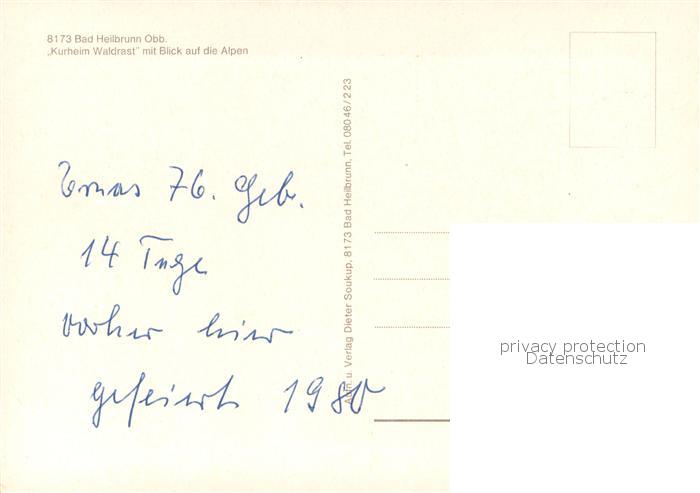 8173 Bad Heilbrunn Obb.
„Kurheim Waldrast" mit Blick auf die Alpen
Ernas 76. Geb.
14 Tage
vorher hier
gefeiert 1980
Aufn. u. Verlag Dieter Soukup, 8173 Bad Heilbrunn, Tel. 080 46 / 2 23
privacy protection
Datenschutz